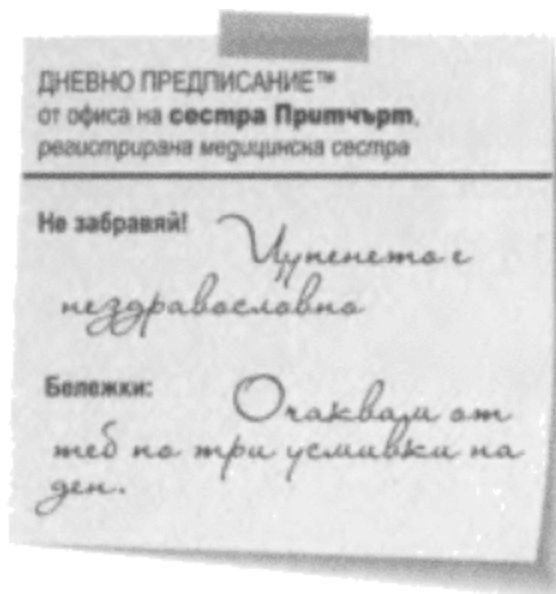 ДНЕВНО ПРЕДПИСАНИЕ™
от офиса на сестра Притчърт,
регистрирана медицинска сестра
Не забравяй! Цупенето е
нездравословно
Бележки: Очаквам от
теб по три усмивки на
ден.